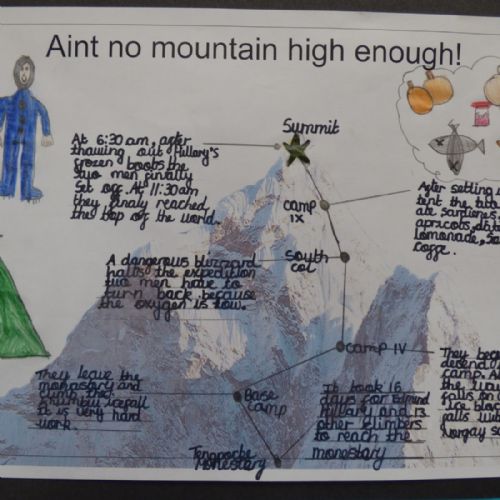 Aint no mountain high enough!
Summit
At 6:30 am, after
thawing out Hillary's
frozen boots the
two men finally
set off. At 11:30am
they finaly reached
the top of the world.
camp
IX
After setting
tent the
ate sardienes
apricots, dat
lemonade,
coffe.
A dangerous blizzard
halts the expedition
two men have to
turn back because
the oxygen is low.
south
col
camp IV
They bec
camp.
falls on
ice bloc
falls
Norgay
They leave the
monastary and
climb the
Khumbu icefall
it is very hard
work.
Base
camp
It took 16
days for Edmund
Hillary and 13
other climbers
to reach the
monastary
Tengboche
Monestery